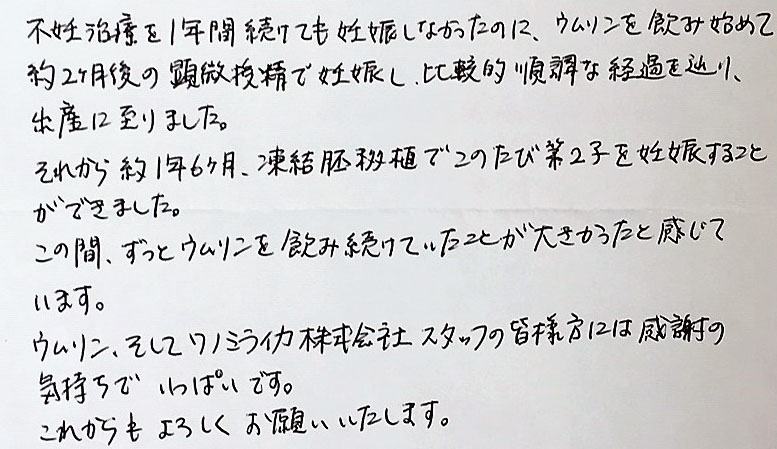 不妊治療を1年間続けても妊娠しなかったのに、ウムリンを飲み始めて
約2ヶ月後の顕微授精で妊娠し、比較的順調な経過を辿り、
出産に至りました。
それから約1年6ヶ月、凍結胚移植でこのたび第2子を妊娠すること
ができました。
この間、ずっとウムリンを飲み続けていたことが大きかったと感じて
います。
ウムリン、そしてワノミライカ株式会社スタッフの皆様方には感謝の
気持ちでいっぱいです。
これからもよろしくお願いいたします。